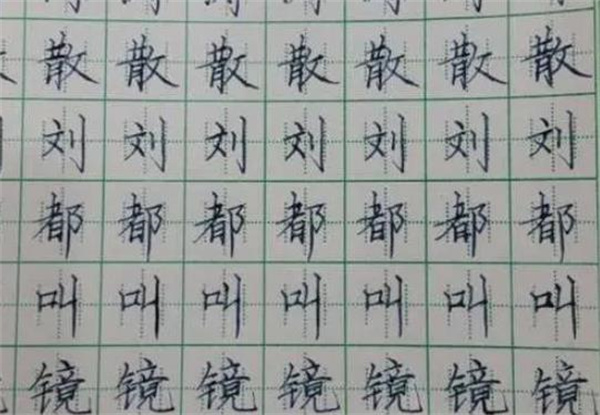 散散散散散散散
刘刘刘刘刘刘刘
都都都都都都都
叫叫叫叫叫叫叫
镜镜镜镜镜镜镜